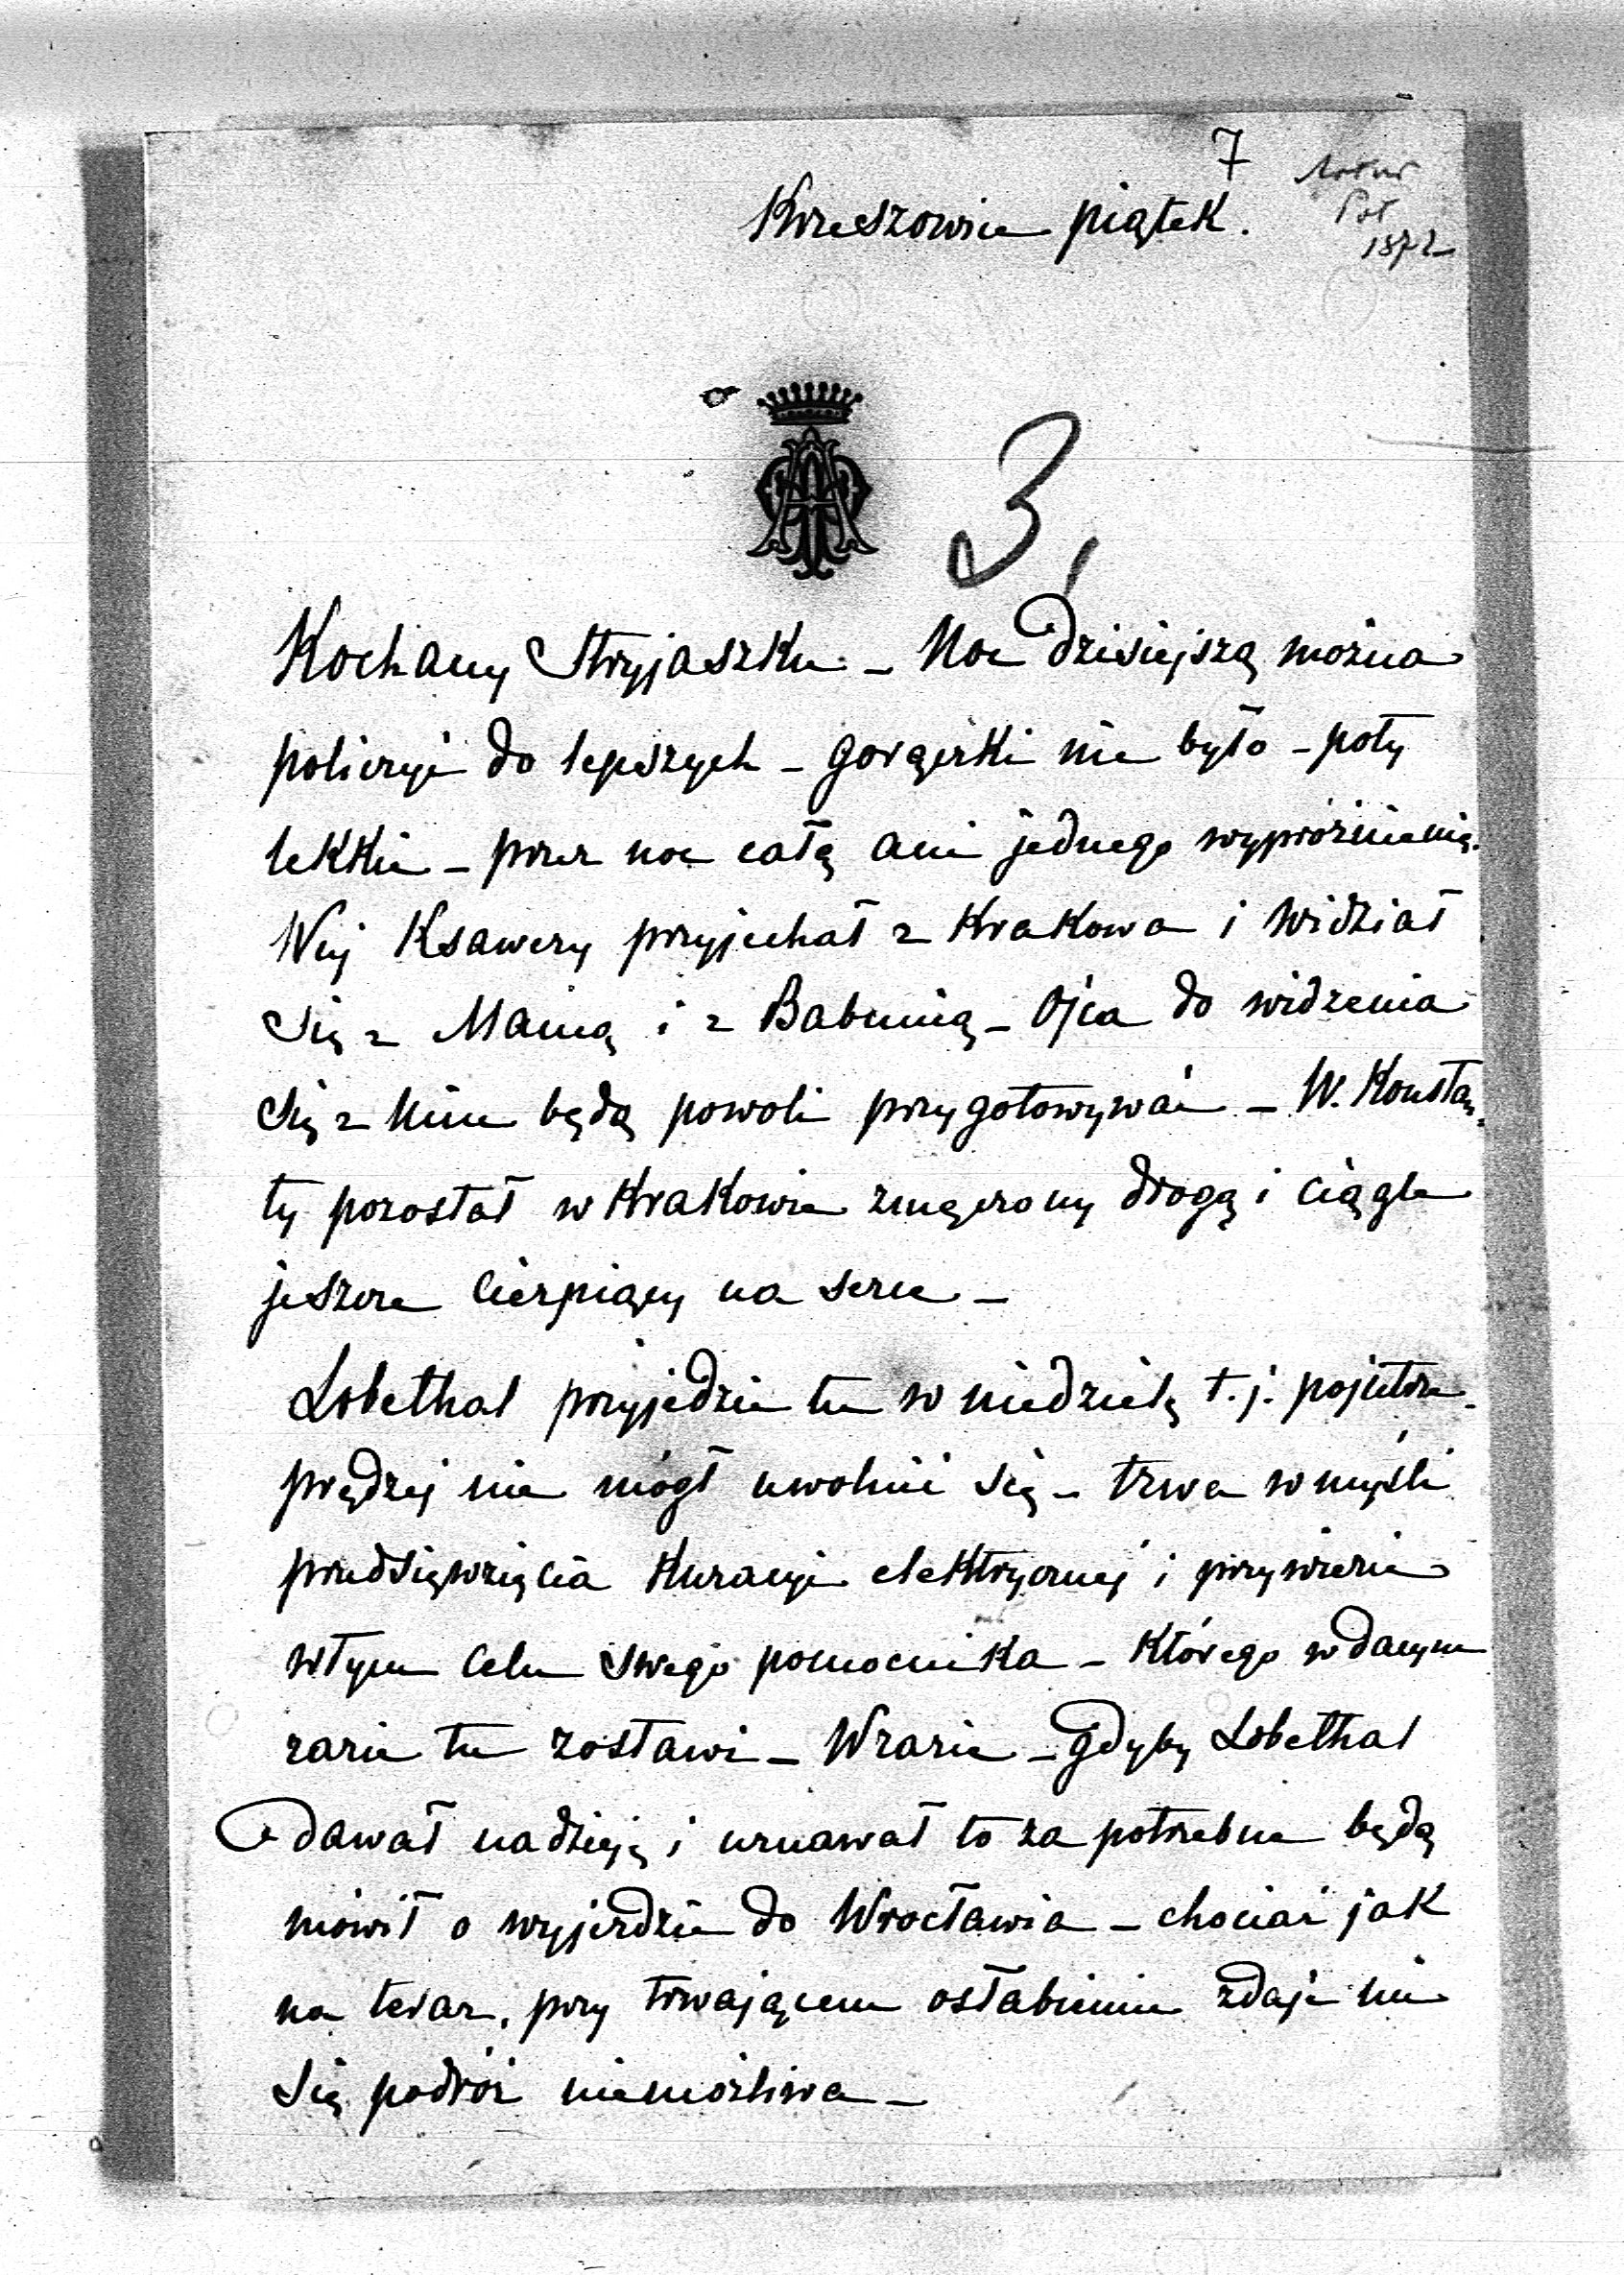 7
Krzeszowice piątek.
Artur
Pot
1872
3,
Kochany Stryjaszku – Noc dzisiejszą można
policzyć do lepszych – gorączki nie było – poty
lekkie – przez noc całą ani jednego wypróżnienia.
Wuj Ksawery przyjechał z Krakowa i widział
się z Mamą i z Babunią – Ojca do widzenia
się z nim będą powoli przygotowywać – W. Konstan
ty pozostał w Krakowie zmęczony drogą i ciągle
jeszcze cierpiący na serce –
Lobethal przyjedzie tu w niedzielę t.j. pojutrze –
prędzej nie mógł uwolnić się – trwa w myśli
przedsięwzięcia kuracyi elektrycznej i przywiezie
w tym celu swego pomocnika – którego w danym
razie tu zostawi – W razie – gdyby Lobethal
dawał nadzieję i uznawał to za potrzebne będę
mówił o wyjeździe do Wrocławia – chociaż jak
na teraz, przy trwającem osłabieniu zdaje mi
się podróż niemożliwa –